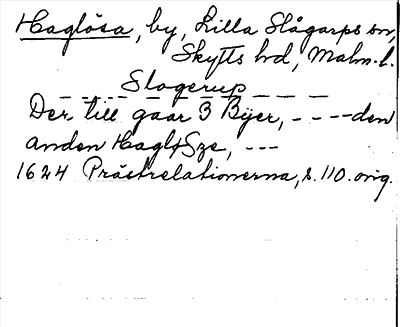 Haglösa, by, Lilla Slågarps sn,
Skytts hd, Malm. l.
_ _ _ _ _ Slogerup _ _ _ _
Der till gaar 3 Byer, - - - - den
anden HagløSze, - - -
1624 Prästrelationerna, s. 110. orig.